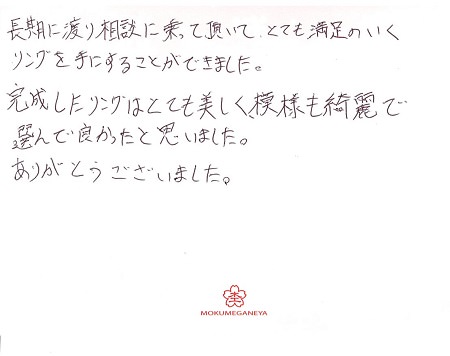 長期に渡り相談に乗って頂いて、とても満足のいく
リングを手にすることができました。
完成したリングはとても美しく、模様も綺麗で
選んで良かったと思いました。
ありがとうございました。
MOKUMEGANEYA